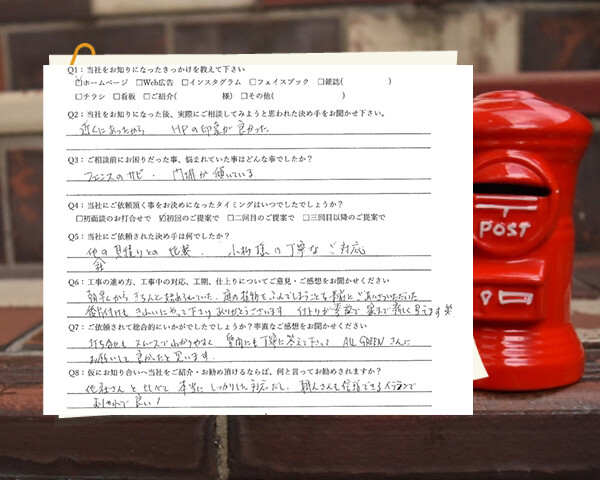 Q1：当社をお知りになったきっかけを教えて下さい
☑ホームページ □Web広告 □インスタグラム □フェイスブック □雑誌(　　　　)
□チラシ □看板 □ご紹介(　　　　様) □その他(　　　　)
Q2：当社をお知りになった後、実際にご相談してみようと思われた決め手をお聞かせ下さい。
近くにあったから　HPの印象が良かった
Q3：ご相談前にお困りだった事、悩まれていた事はどんな事でしたか？
フェンスのサビ・門塀が傾いている
Q4：当社にご依頼頂く事をお決めになったタイミングはいつでしたでしょうか？
□初面談のお打合せで ☑初回のご提案で □二回目のご提案で □三回目以降のご提案で
Q5：当社にご依頼された決め手は何でしたか？
他の見積りとの比較、小柳様の丁寧なご対応
Q6：工事の進め方、工事中の対応、工期、仕上りについてご意見・ご感想をお聞かせください
朝早くからきちんと 庭の植物をふんでしまうことも事前にごあいさついただいた
後片付けもきれいにやって下さりありがとうございます 仕上りが素敵で家まで新しく見えます 笑
Q7：ご依頼されて総合的にいかがでしたでしょうか？率直なご感想をお聞かせください
打ち合せもスムーズでわかりやすく 質問にも丁寧に答えて下さって ALL GREENさんに
お願いして良かったと思います。
Q8：仮にお知り合いへ当社をご紹介・お勧め頂けるならば、何と言ってお勧めされますか？
他社さんと比べて 本当にしっかりした対応だし、職人さんも信頼できる
おしゃれで良い！
POST